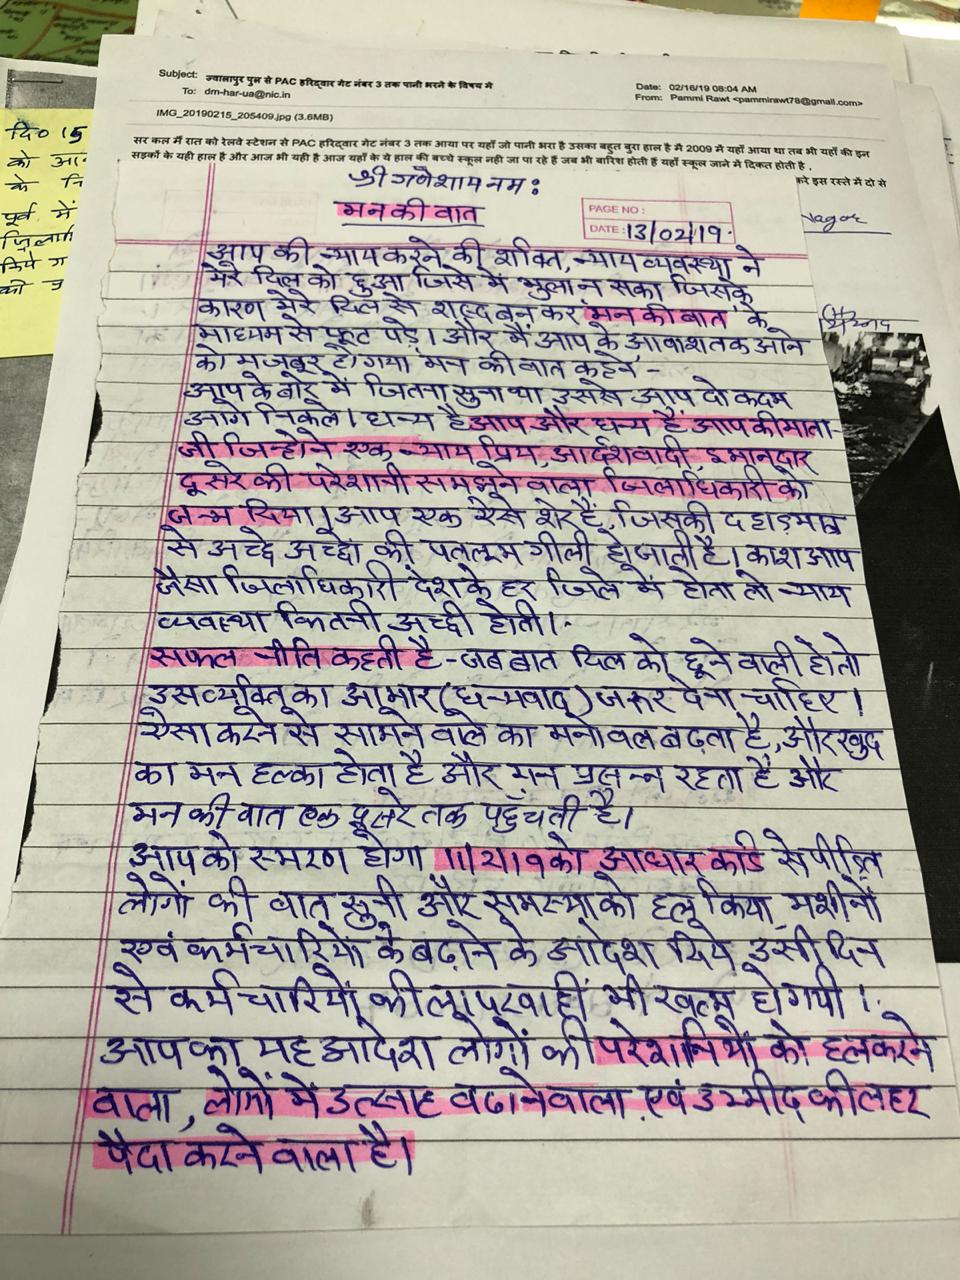 Subject: ज्वालापुर पुल से PAC हरिद्वार गेट नंबर 3 तक पानी भरने के विषय में
To: dm-har-ua@nic.in
Date: 02/16/19 08:04 AM
From: Pammi Rawt <pammirawt78@gmail.com>
IMG_20190215_205409.jpg (3.6MB)
सर कल मैं रात को रेलवे स्टेशन से PAC हरिद्वार गेट नंबर 3 तक आया पर यहाँ जो पानी भरा है उसका बहुत बुरा हाल है मै 2009 में यहाँ आया था तब भी यहाँ की इन
सड़कों के यही हाल है और आज भी यही है आज यहाँ के ये हाल की बच्चे स्कूल नही जा पा रहे हैं जब भी बारिश होती हैं यहाँ स्कूल जाने में दिकत होती है ,
करे इस रस्ते में दो से
दि० 15
को
के नि
पूर्व में
किये ग
को
Nagar
श्री गणेशाय नम:
मन की बात
PAGE NO :
DATE : 13/02/19.
आप की न्याय करने की शक्ति, न्याय व्यवस्था ने
मेरे दिल को छुआ जिसे मैं भुला न सका जिसके
कारण मेरे दिल से शब्द बन कर 'मन की बात' के
माध्यम से फूट पड़े। और मैं आप के आवाश तक आने
को मजबूर हो गया मन की बात कहने -
आप के बारे में जितना सुना था उससे आप दो कदम
आगे निकले। धन्य है आप और धन्य हैं आप की माता-
जी जिन्होंने एक न्याय प्रिय, आर्दशवादी, इमानदार
दूसरे की परेशानी समझने वाला जिलाधिकारी को
जन्म दिया। आप एक ऐसे शेर हैं, जिसकी दहाड़ मात्र
से अच्छे अच्छों की पतलूम गीली हो जाती है। काश आप
जैसा जिलाधिकारी देश के हर जिले में होता तो न्याय
व्यवस्था कितनी अच्छी होती।
सफल नीति कहती है - जब बात दिल को छूने वाली हो तो
उस व्यक्ति का आभार (धन्यवाद) जरूर देना चाहिए।
ऐसा करने से सामने वाले का मनोवल बढ़ता है, और खुद
का मन हल्का होता है और मन प्रसन्न रहता है और
मन की बात एक दूसरे तक पहुँचती है।
आप को स्मरण होगा 11/2/19 को आधार कार्ड से पीड़ित
लोगों की बात सुनी और समस्या को हल किया, मशीनों
एवं कर्मचारियों के बढ़ाने के आदेश दिये, उसी दिन
से कर्मचारियों की लापरवाही भी खत्म हो गयी।
आप का यह आदेश लोगों की परेशानियों को हल करने
वाला, लोगों में उत्साह बढाने वाला एवं उम्मीद की लहर
पैदा करने वाला है।